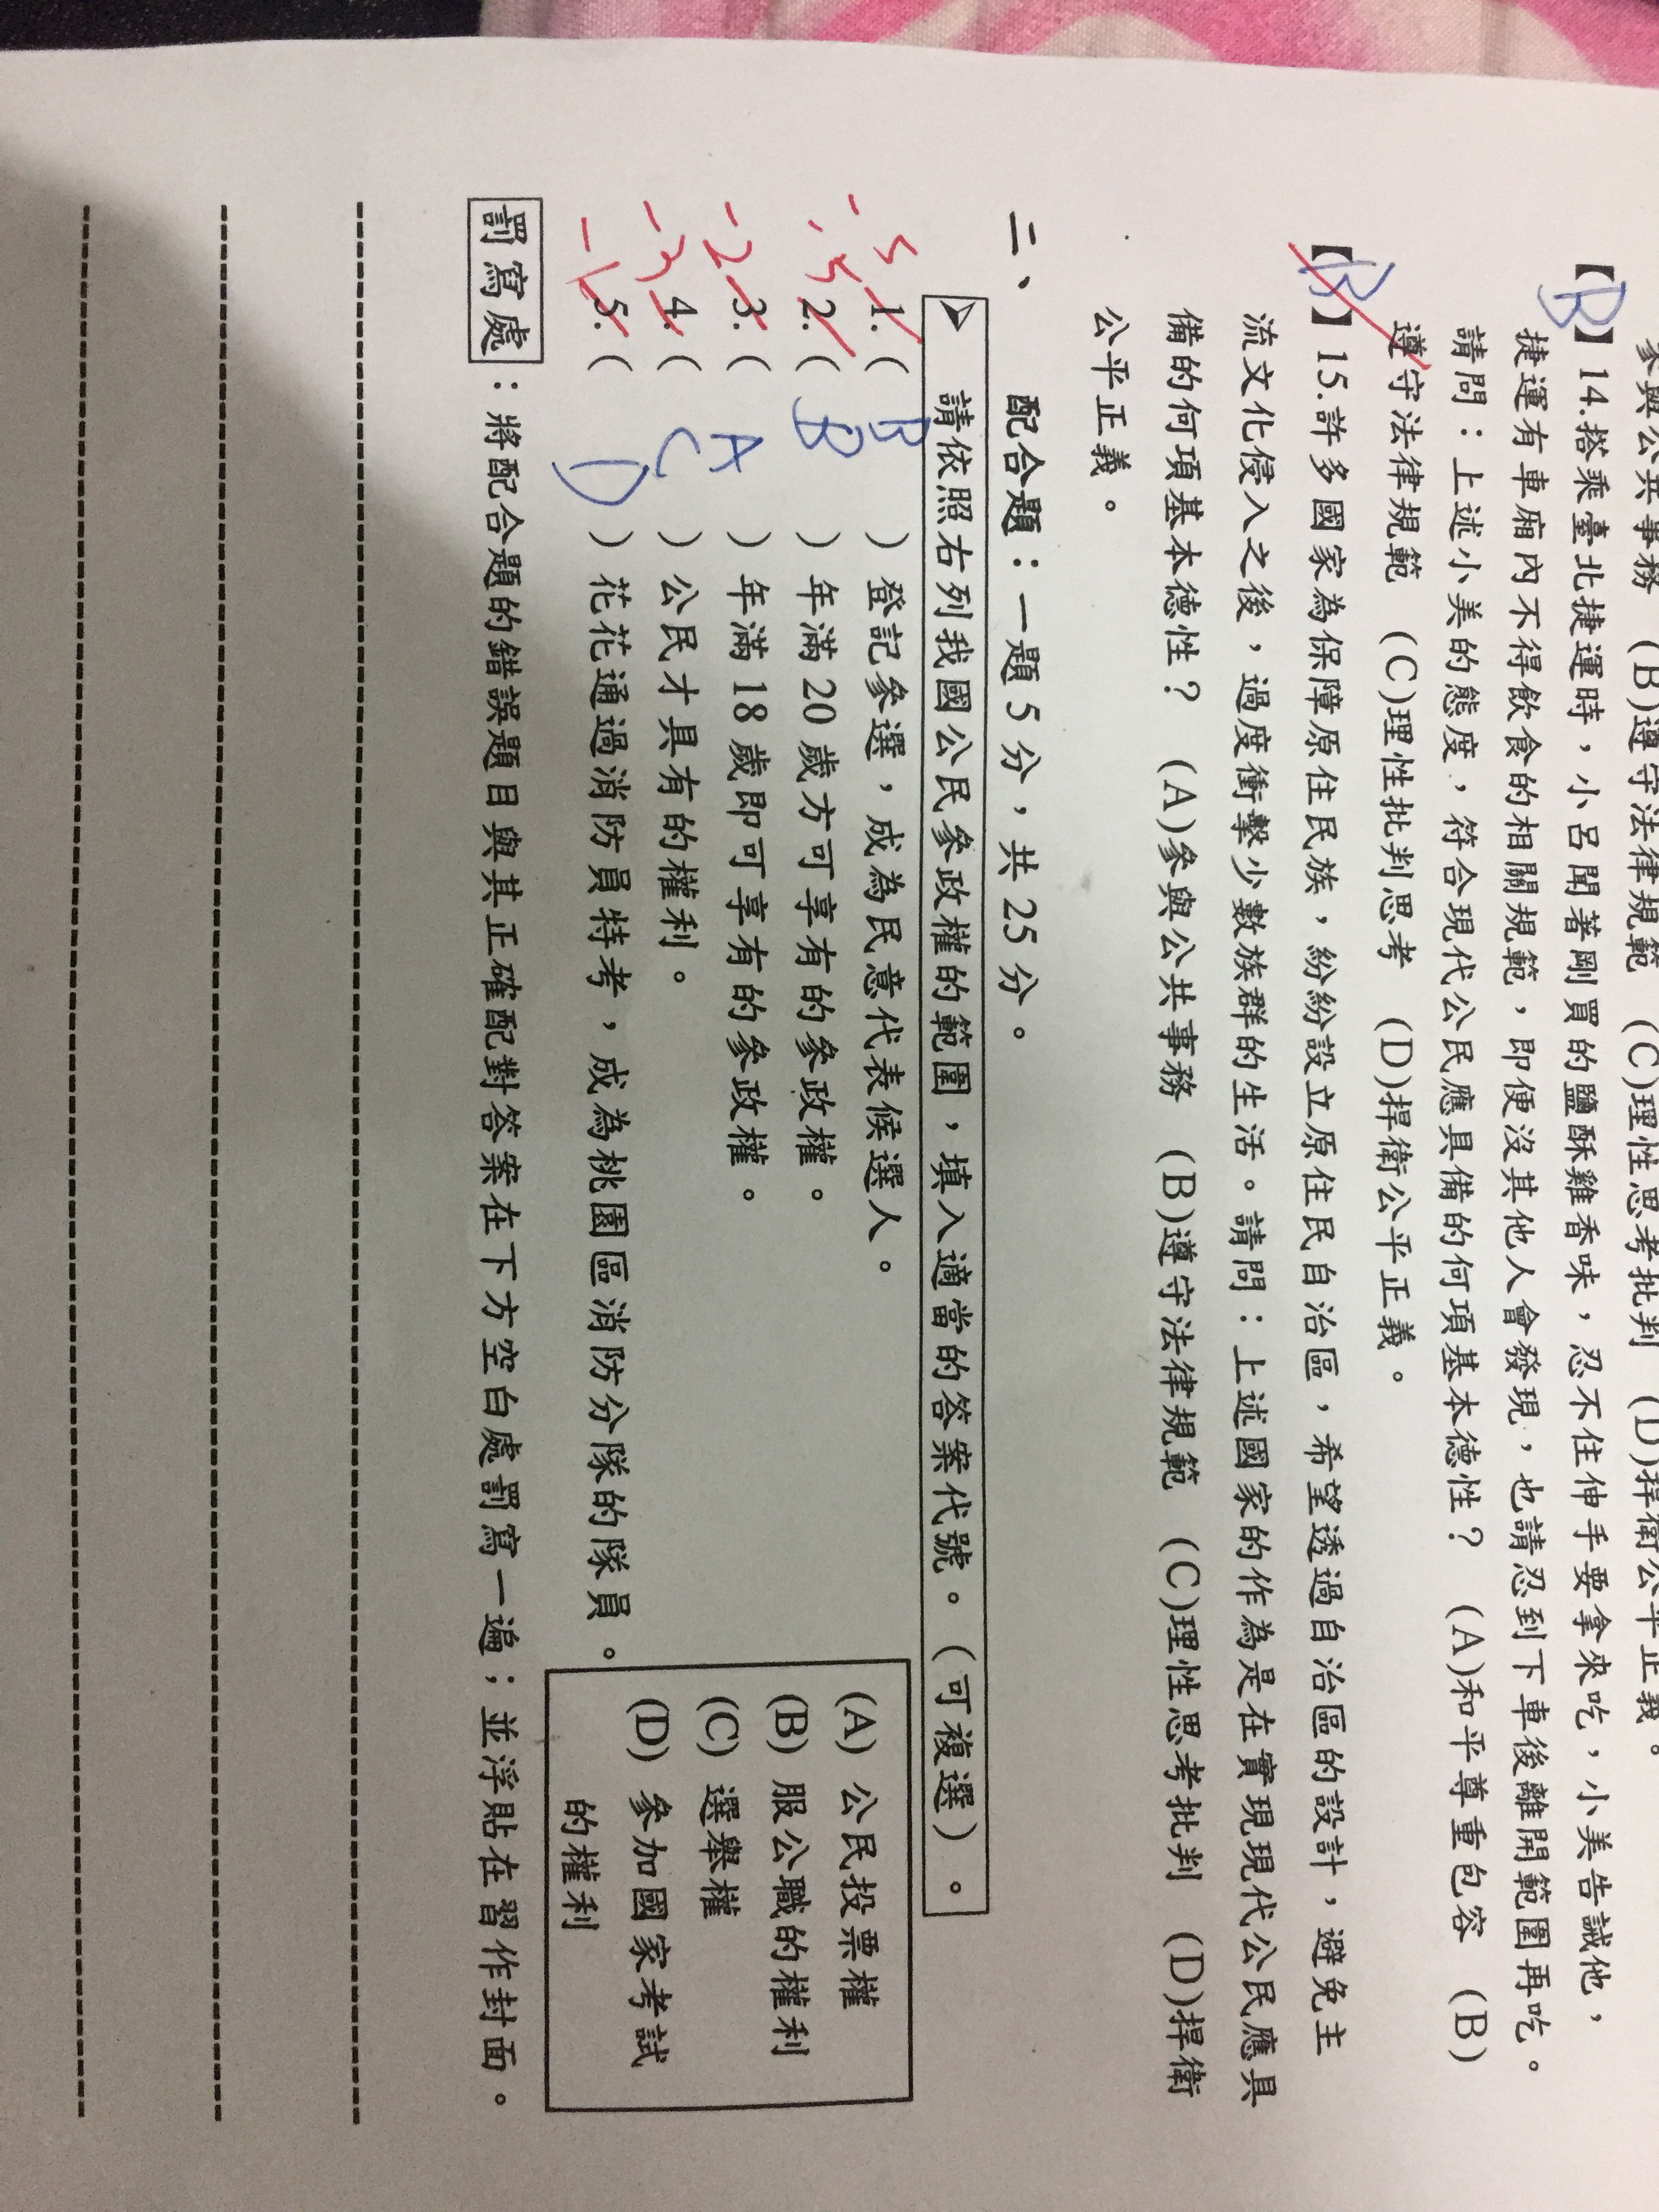 參與公共事務 (B)遵守法律規範 (C)理性思考批判 (D)捍衛公平正義。
【B】14.搭乘臺北捷運時，小呂聞著剛買的鹽酥雞香味，忍不住伸手要拿來吃，小美告誡他，
捷運有車廂內不得飲食的相關規範，即便沒其他人會發現，也請忍到下車後離開範圍再吃。
請問：上述小美的態度，符合現代公民應具備的何項基本德性？ (A)和平尊重包容 (B)
遵守法律規範 (C)理性批判思考 (D)捍衛公平正義。
【B】15.許多國家為保障原住民族，紛紛設立原住民自治區，希望透過自治區的設計，避免主
流文化侵入之後，過度衝擊少數族群的生活。請問：上述國家的作為是在實現現代公民應具
備的何項基本德性？ (A)參與公共事務 (B)遵守法律規範 (C)理性思考批判 (D)捍衛
公平正義。
二、 配合題：一題 5 分，共 25 分。
➢ 請依照右列我國公民參政權的範圍，填入適當的答案代號。(可複選)。
-5 1.( B ) 登記參選，成為民意代表候選人。
-5 2.( B ) 年滿 20 歲方可享有的參政權。
-2 3.( A ) 年滿 18 歲即可享有的參政權。
-3 4.( C ) 公民才具有的權利。
-1 5.( D ) 花花通過消防員特考，成為桃園區消防分隊的隊員。
(A) 公民投票權
(B) 服公職的權利
(C) 選舉權
(D) 參加國家考試
的權利
罰寫處：將配合題的錯誤題目與其正確配對答案在下方空白處罰寫一遍；並浮貼在習作封面。